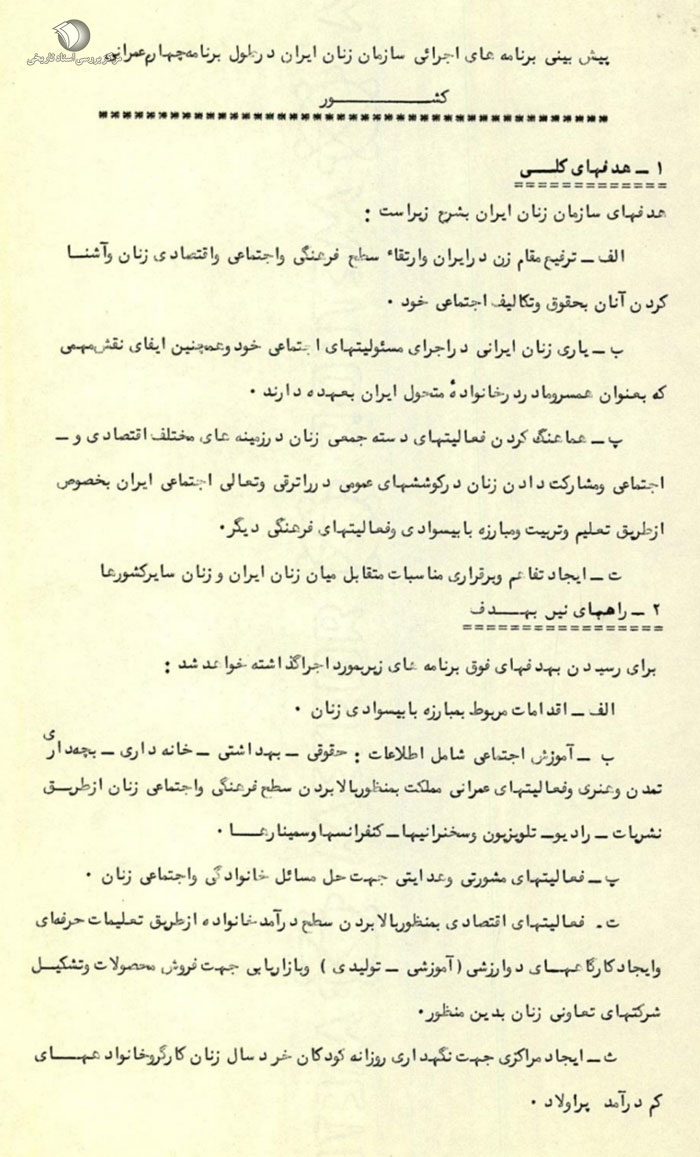 مرکز بررسی اسناد تاریخی
پیش بینی برنامه های اجرائی سازمان زنان ایران درطول برنامه چهارم عمرانی
کشـــــور
۱ ـ هدفهای کلـــی
هدفهای سازمان زنان ایران بشرح زیراست :
الف ـ ترفیع مقام زن درایران وارتقاء سطح فرهنگی واجتماعی واقتصادی زنان وآشنـــا
کردن آنان بحقوق وتکالیف اجتماعی خود .
ب ـ یاری زنان ایرانی دراجرای مسئولیتهای اجتماعی خودوهمچنین ایفای نقش مهمی
که بعنوان همسرومادردرخانوادهٔ متحول ایران بعهده دارند .
پ ـ هماهنگ کردن فعالیتهای دسته جمعی زنان درزمینه های مختلف اقتصادی و ـ
اجتماعی ومشارکت دادن زنان درکوششهای عمومی درراترقی وتعالی اجتماعی ایران بخصوص
ازطریق تعلیم وتربیت ومبارزه بابیسوادی وفعالیتهای فرهنگی دیگر.
ت ـ ایجاد تفاهم وبرقراری مناسبات متقابل میان زنان ایران و زنان سایرکشورها
۲ ـ راههای نیل بهـــدف
برای رسیدن بهدفهای فوق برنامه های زیربمورداجراگذاشته خواهدشد :
الف ـ اقدامات مربوط بمبارزه بابیسوادی زنان .
ب ـ آموزش اجتماعی شامل اطلاعات : حقوقی ـ بهداشتی ـ خانه داری ـ بچه داری
تمدن وهنری وفعالیتهای عمرانی مملکت بمنظوربالابردن سطح فرهنگی واجتماعی زنان ازطریــق
نشریات ـ رادیوـ تلویزیون وسخنرانیهاـ کنفرانسهاوسمینارهـــا .
پ ـ فعالیتهای مشورتی وهدایتی جهت حل مسائل خانوادگی واجتماعی زنان .
ت ـ فعالیتهای اقتصادی بمنظوربالابردن سطح درآمدخانواده ازطریق تعلیمات حرفه‌ای
وایجادکارگاههـــای دوارزشی (آموزشی ـ تولیدی ) وبازاریابی جهت فروش محصولات وتشکیــل
شرکتهای تعاونی زنان بدین منظور.
ث ـ ایجاد مراکزی جهت نگهداری روزانه کودکان خردسال زنان کارگروخانواده هـــای
کم درآمد پراولاد .